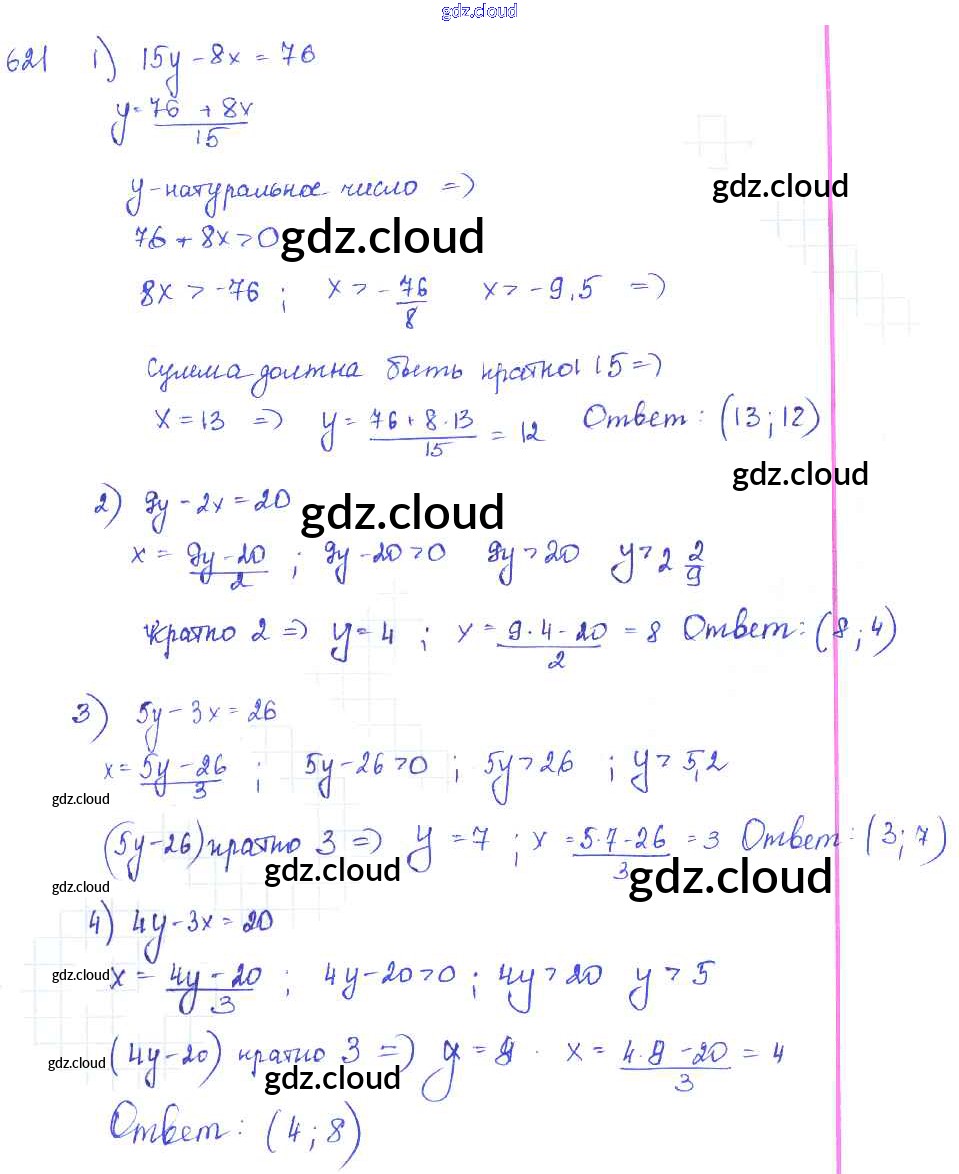 gdz.cloud
621 1) 15y - 8x = 76
y = 76 + 8x / 15
gdz.cloud
y - натуральное число =>
76 + 8x > 0 gdz.cloud
8x > -76 ; x > - 76/8 x > -9,5 =>
Сумма должна быть кратна 15 =>
x = 13 => y = 76 + 8·13 / 15 = 12 Ответ: (13; 12)
gdz.cloud
2) 9y - 2x = 20 gdz.cloud
x = 9y - 20 / 2 ; 9y - 20 > 0 9y > 20 y > 2 2/9
кратно 2 => y = 4 ; x = 9·4 - 20 / 2 = 8 Ответ: (8; 4)
3) 5y - 3x = 26
x = 5y - 26 / 3 ; 5y - 26 > 0 ; 5y > 26 ; y > 5,2
gdz.cloud
(5y - 26) кратно 3 => y = 7 ; x = 5·7 - 26 / 3 = 3 Ответ: (3; 7)
gdz.cloud gdz.cloud
gdz.cloud
4) 4y - 3x = 20
gdz.cloud x = 4y - 20 / 3 ; 4y - 20 > 0 ; 4y > 20 y > 5
gdz.cloud (4y - 20) кратно 3 => y = 8 . x = 4·8 - 20 / 3 = 4
gdz.cloud
Ответ: (4; 8)